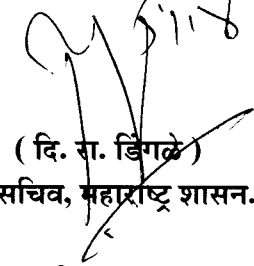 ( दि. रा. डिंगळे )
सचिव, महाराष्ट्र शासन.